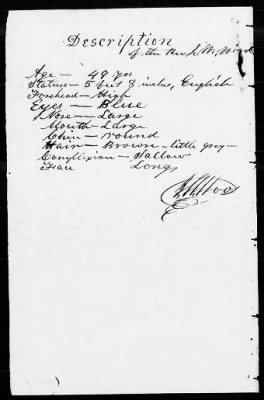 Description
of the Rev. J. W. Wood
Age — 48 yrs
Stature — 5 feet 8 inches, English
Forehead — High
Eyes — Blue
Nose — Large
Mouth — Large
Chin — round
Hair — Brown — little grey —
Complexion — Sallow
Face Long